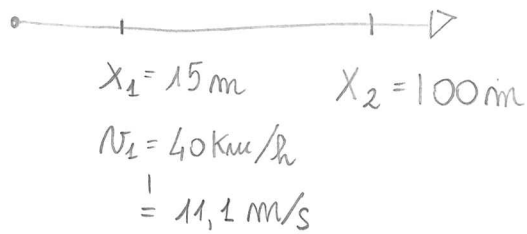 X₁ = 15 m
X₂ = 100 m
v₁ = 40 Km/h
= 11,1 m/s